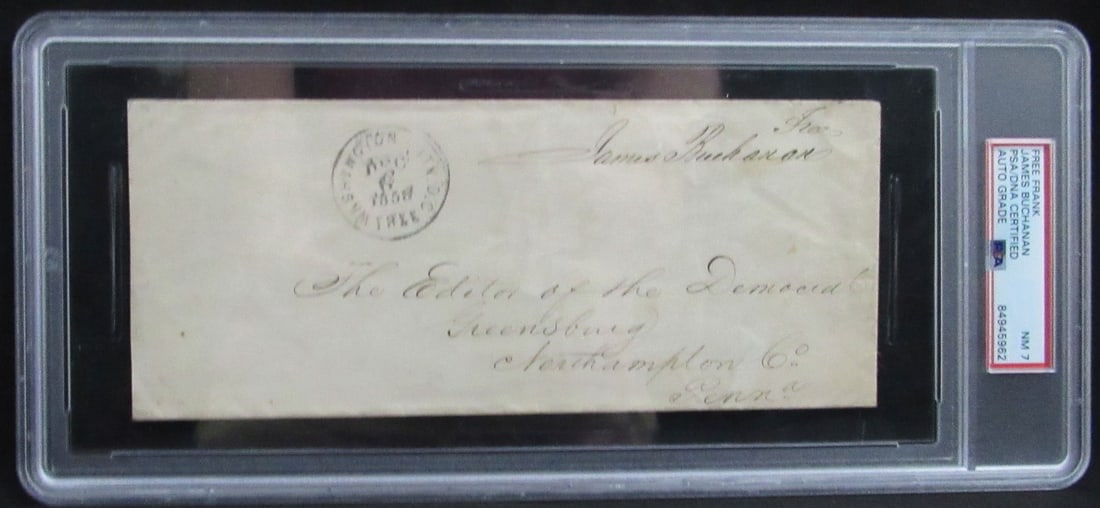 Free
James Buchanan
WASHINGTON CITY D.C.
DEC
6
1858
FREE
The Editor of the Democrat
Greensburg
Northampton Co
Penna
FREE FRANK
JAMES BUCHANAN
PSA/DNA CERTIFIED
AUTO GRADE
PSA
NM 7
84945962